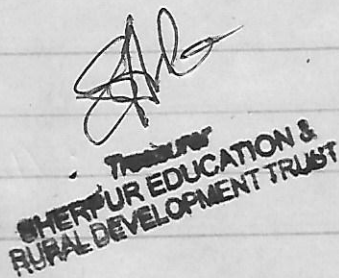 Treasurer
SHERPUR EDUCATION &
RURAL DEVELOPMENT TRUST